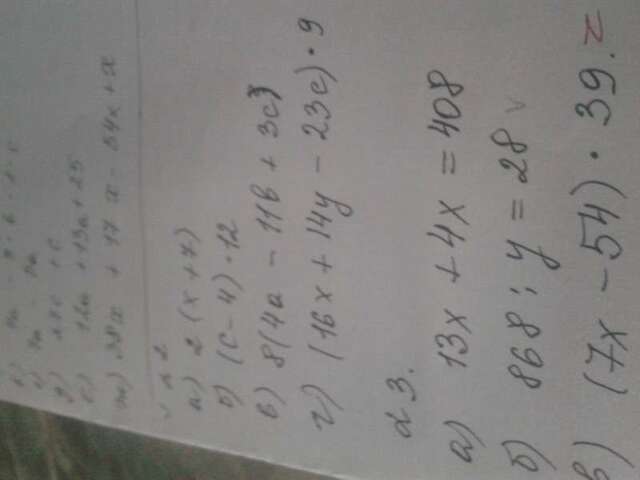 д) 27c + c
е) 12a + 13a + 25
ж) 38x + 17x - 54x + x
№2
а) 2(x+7)
б) (c-4)·12
в) 8(4a - 11b + 3c)
г) (16x + 14y - 23c)·9
№3.
а) 13x + 4x = 408
б) 868 : y = 28
в) (7x - 54)·39. =